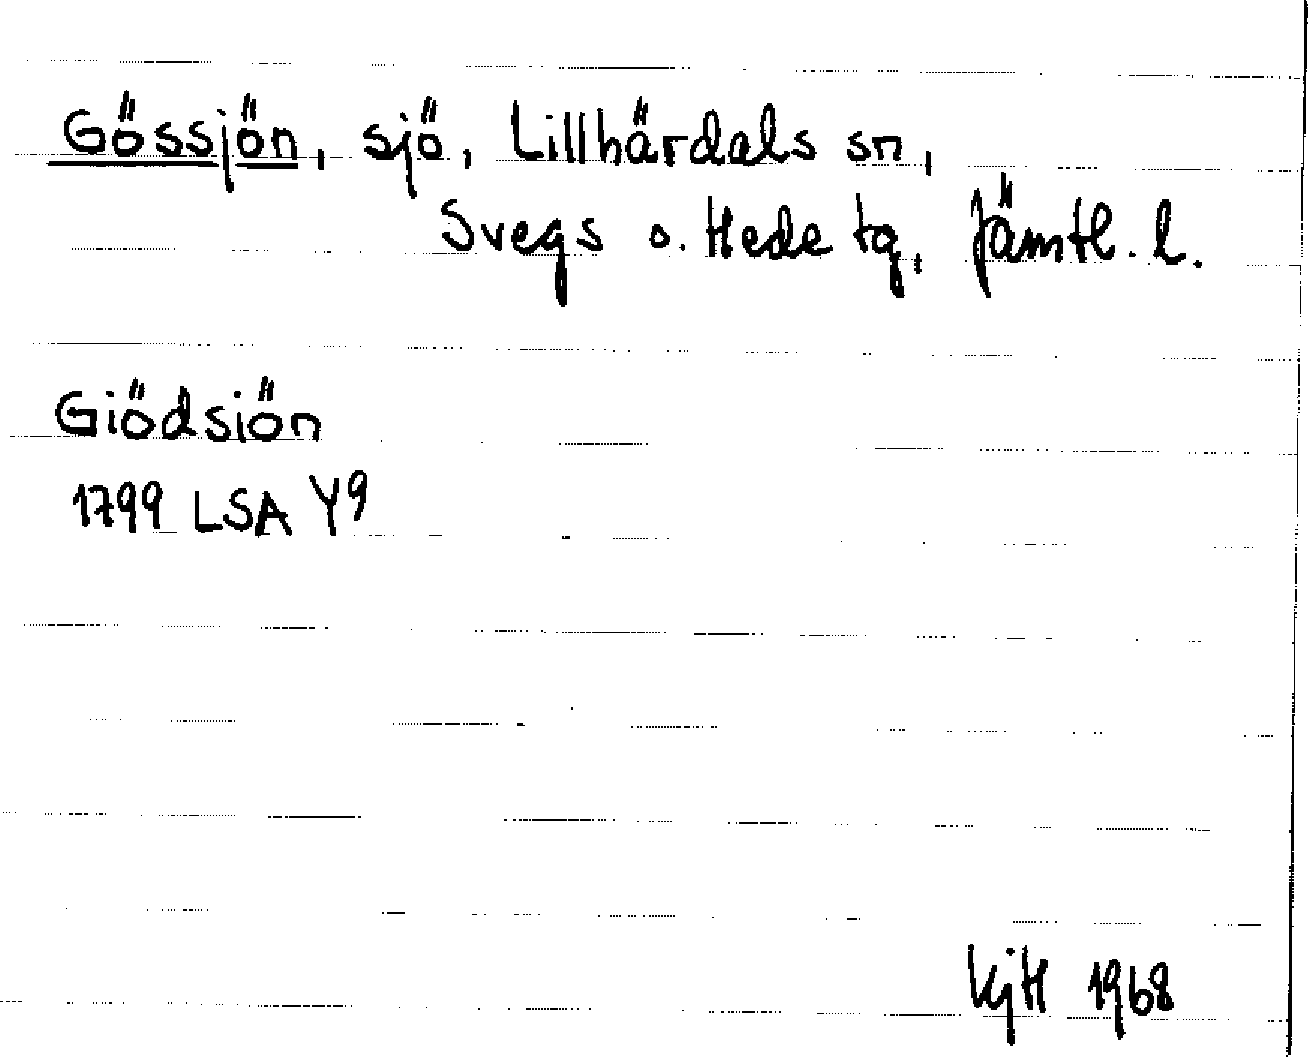 Gössjön, sjö, Lillhärdals sn,
Svegs o. Hede tg, Jämtl. l.
Giödsiön
1799 LSA Y9
KjH 1968